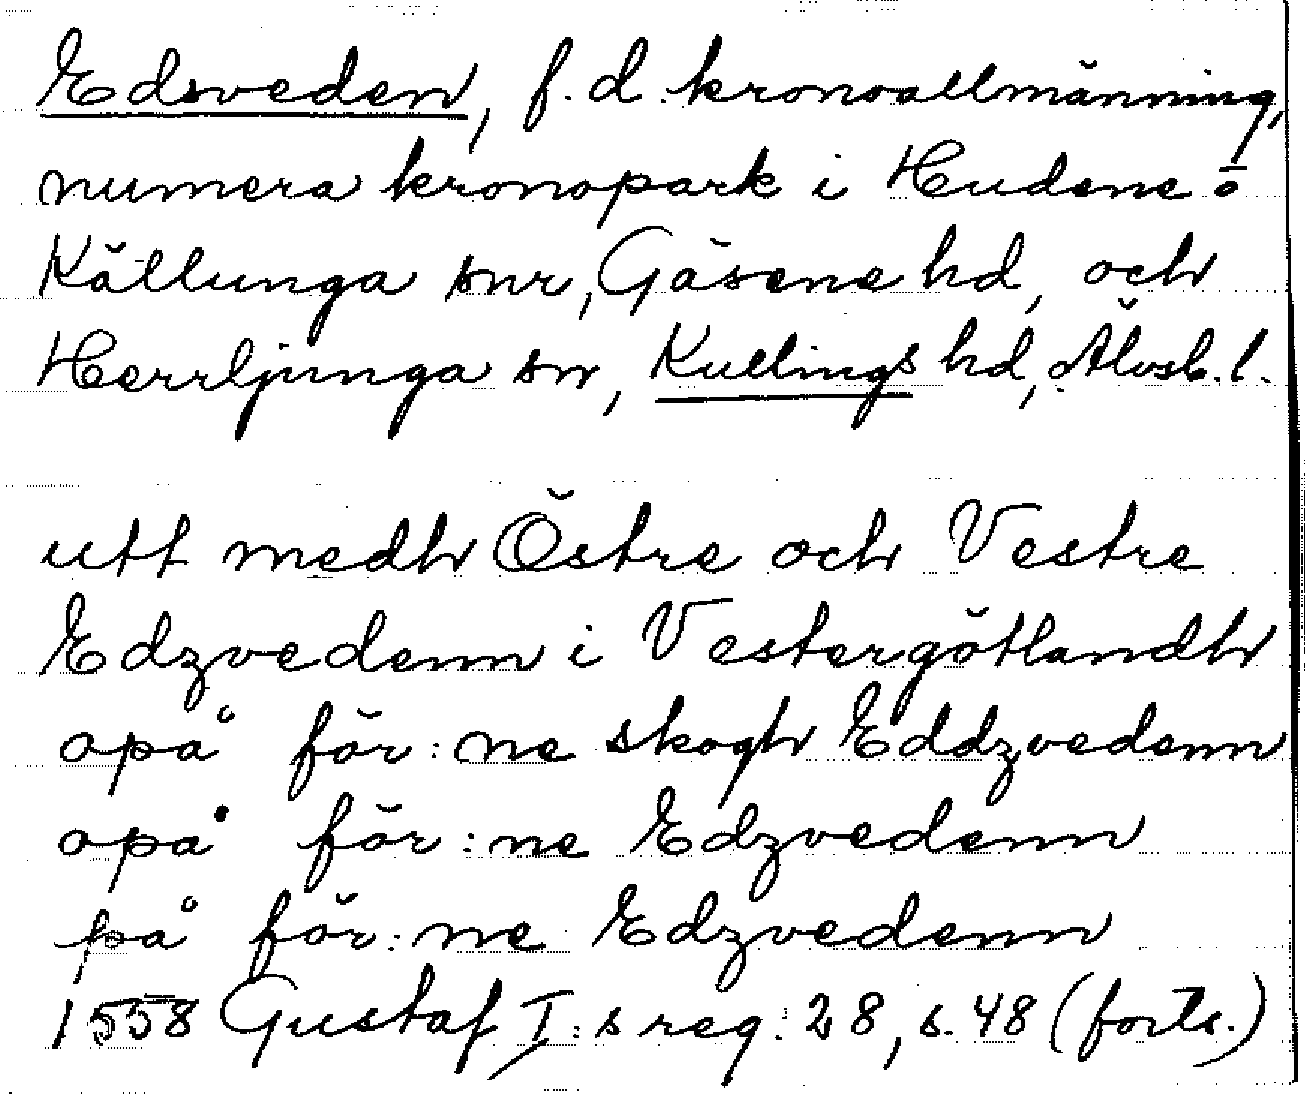 Edsveden, f.d. kronoallmänning,
numera kronopark i Hudene o
Källunga snr, Gäsene hd, och
Herrljunga sn, Kullings hd, Älvsb. l.
utt medh Östre och Vestre
Edzvedenn i Vestergötlandh
opå för:ne skogh Eddzvedenn
opå för:ne Edzvedenn
på för:ne Edzvedenn
1558 Gustaf I:s reg. 28, s. 48 (forts.)